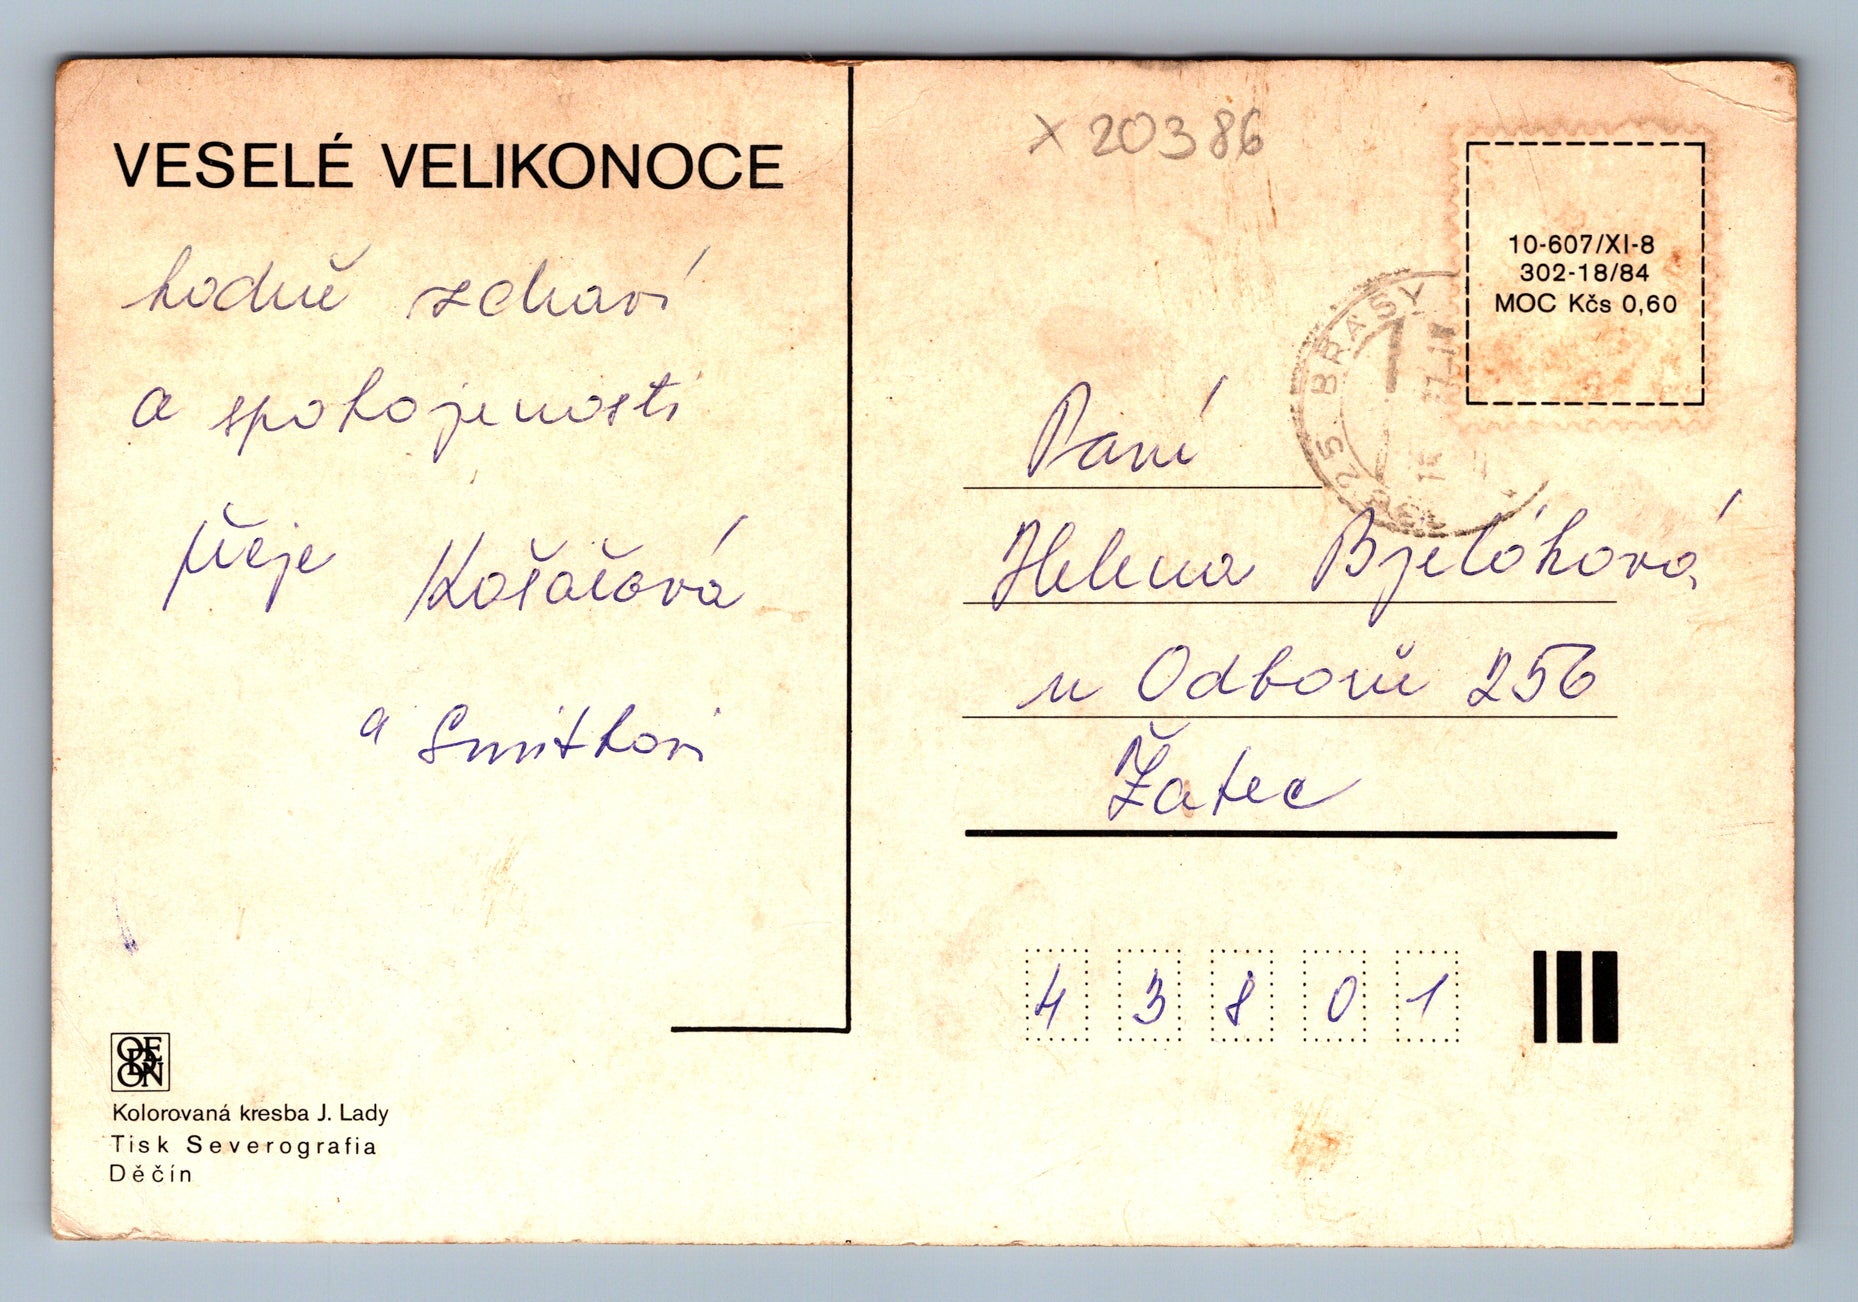 VESELÉ VELIKONOCE
hodně zdraví
a spokojenosti
přeje Košařová
a Smitkovi
ODEON
Kolorovaná kresba J. Lady
Tisk Severografia
Děčín
x 20386
10-607/XI-8
302-18/84
MOC Kčs 0,60
338 25 BŘASY
Paní
Helena Bjelóhová
u Odborů 256
Žatec
4 3 8 0 1